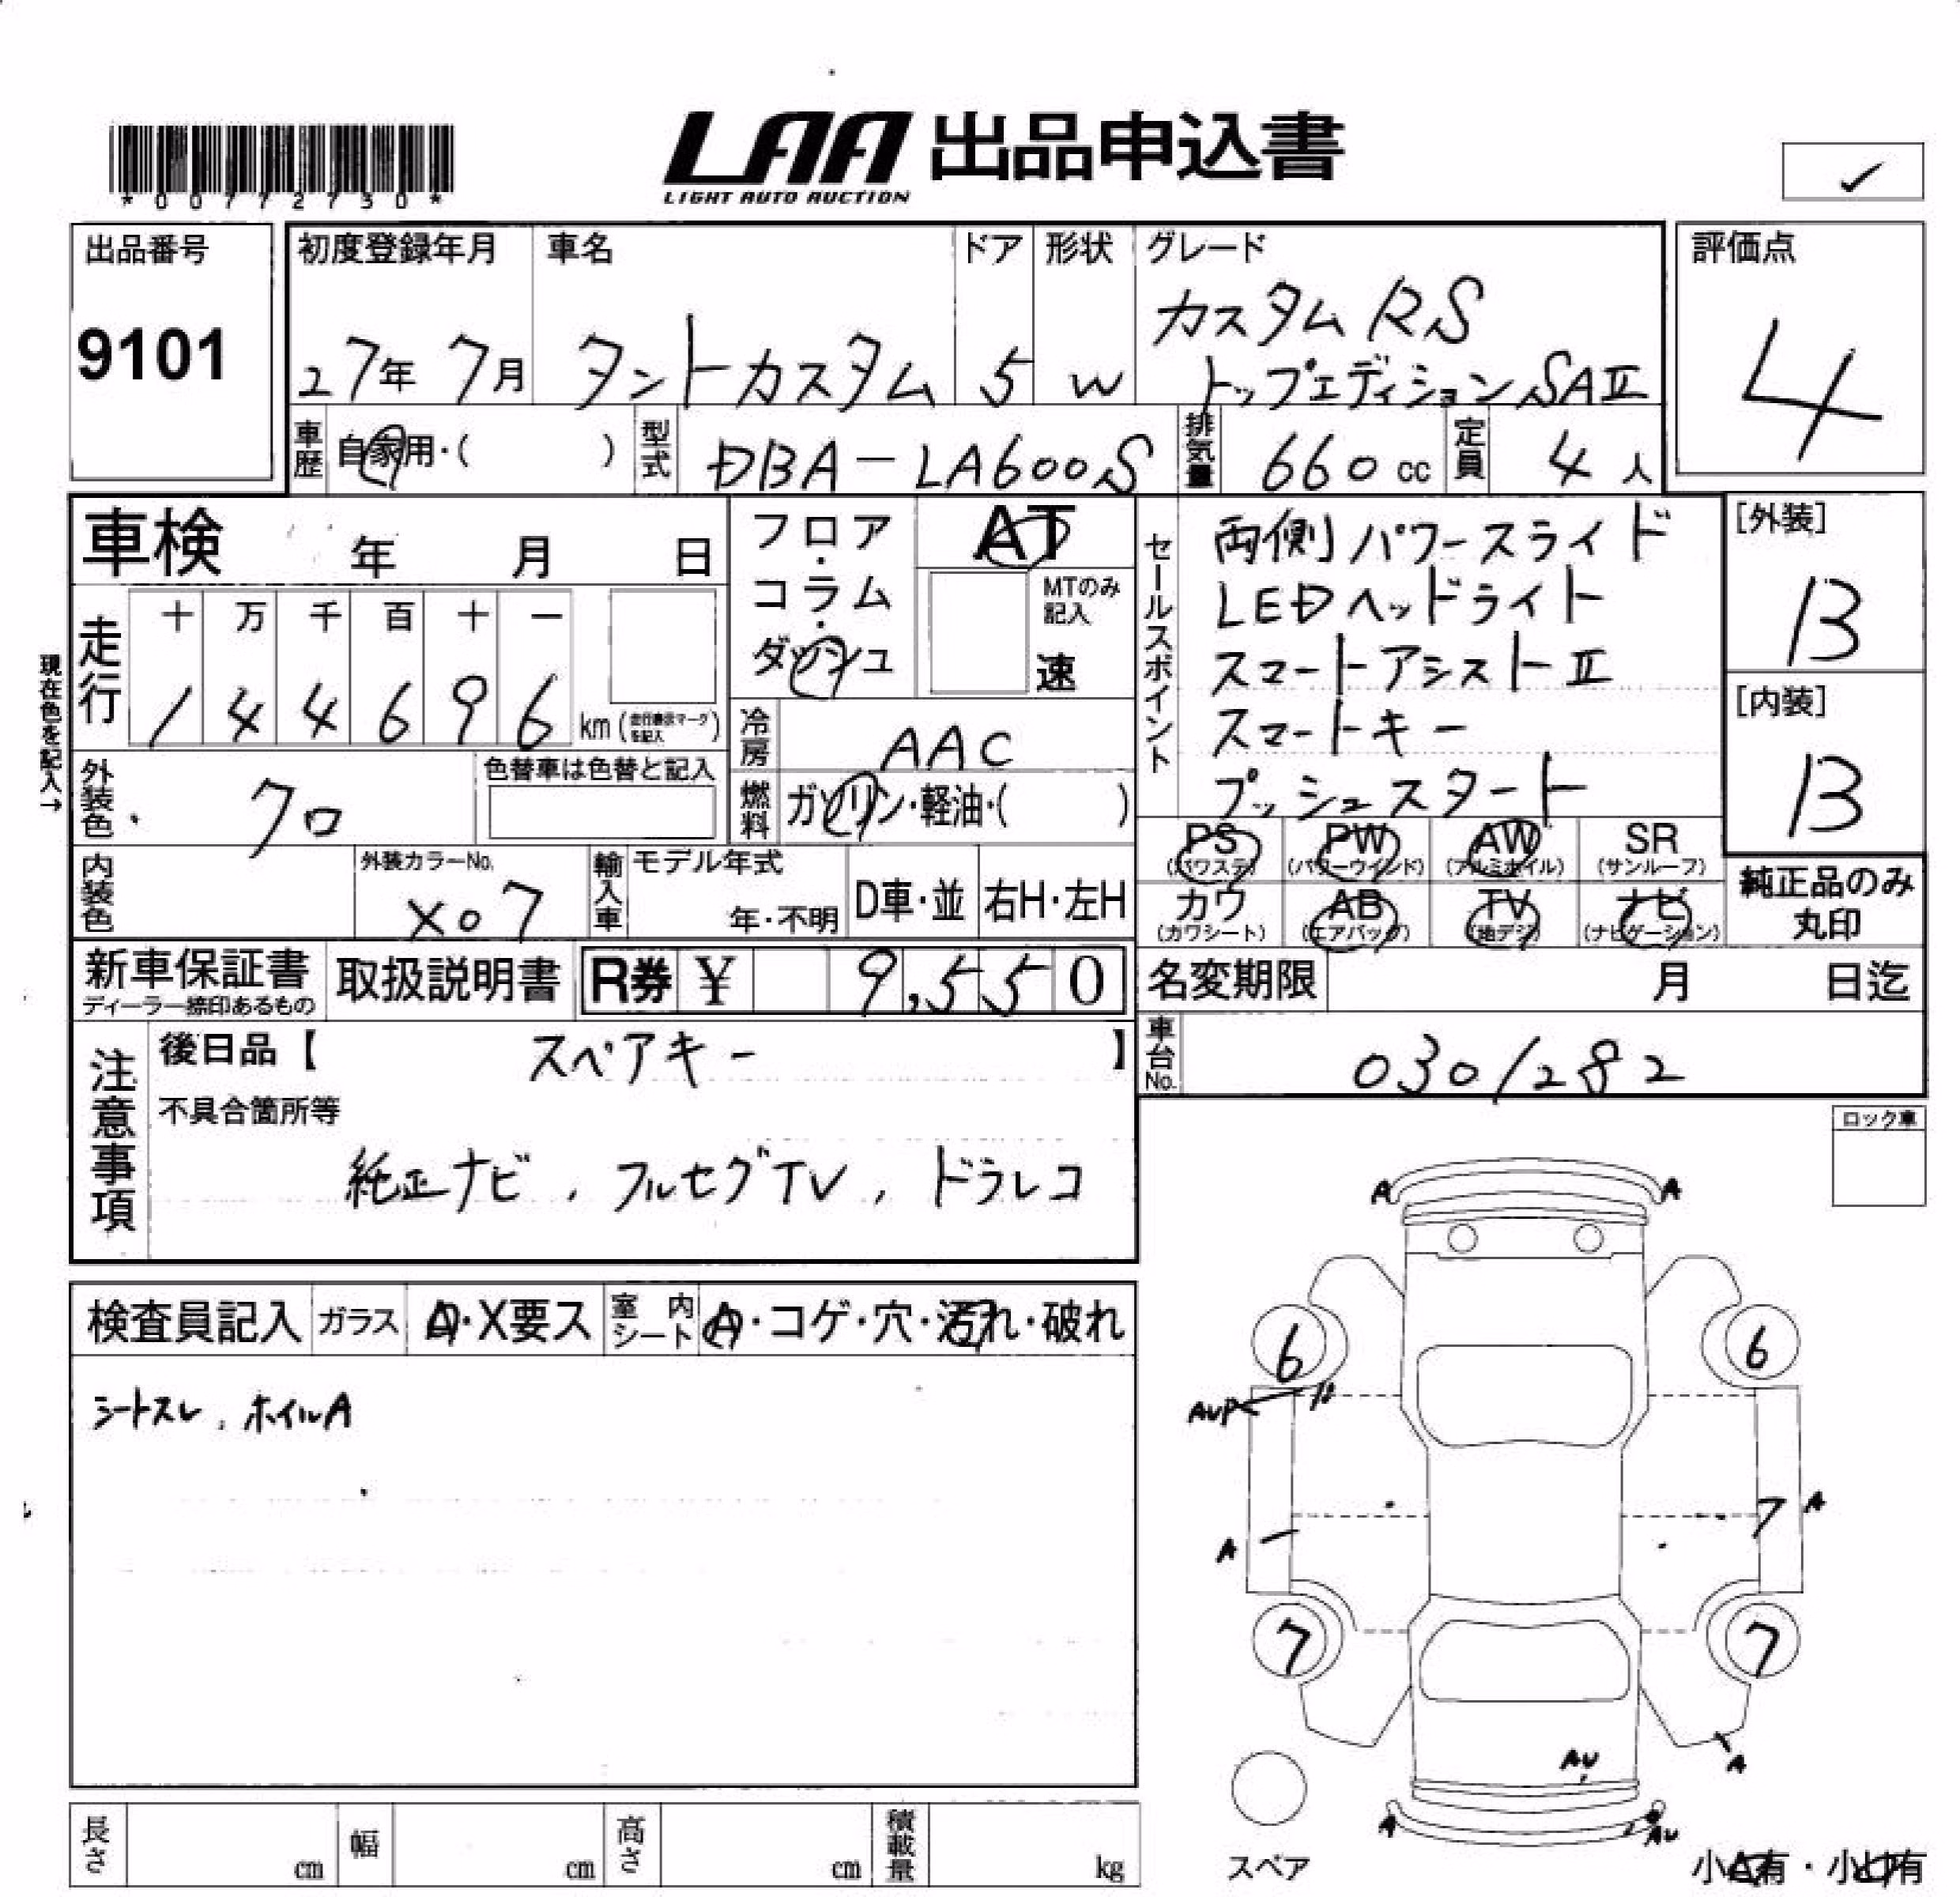 *00772730*
LAA 出品申込書
LIGHT AUTO AUCTION
✓
出品番号
9101
初度登録年月
27年 7月
車名
タントカスタム
ドア
5
形状
W
グレード
カスタム RS
トップエディション SAⅡ
評価点
4
車歴
自家用・( )
型式
DBA-LA600S
排気量
660 cc
定員
4 人
車検 年 月 日
フロア・コラム・ダッシュ
AT
MTのみ記入
速
セールスポイント
両側パワースライド
LEDヘッドライト
スマートアシストⅡ
スマートキー
プッシュスタート
[外装]
B
[内装]
B
現在色を記入→
走行
十 万 千 百 十 一
1 4 4 6 9 6 km (走行表示マークを記入)
冷房
AAC
外装色
クロ
色替車は色替と記入
燃料
ガソリン・軽油・( )
内装色
外装カラーNo.
X07
輸入車
モデル年式
年・不明
D車・並
右H・左H
PS (パワステ)
PW (パワーウインド)
AW (アルミホイル)
SR (サンルーフ)
カワ (カワシート)
AB (エアバッグ)
TV (地デジ)
ナビ (ナビゲーション)
純正品のみ
丸印
新車保証書
ディーラー捺印あるもの
取扱説明書
R券 ¥ 9,550
名変期限 月 日迄
車台No.
0301282
注意事項
後日品【 スペアキー 】
不具合箇所等
純正ナビ, フルセグTV, ドラレコ
ロック車
A A
6 6
AUP
A A
7 7
A
AU
A AU
スペア
小A有・小U有
検査員記入
ガラス
A・X要ス
室内シート
A・コゲ・穴・汚れ・破れ
シートスレ, ホイルA
長さ cm
幅 cm
高さ cm
積載量 kg